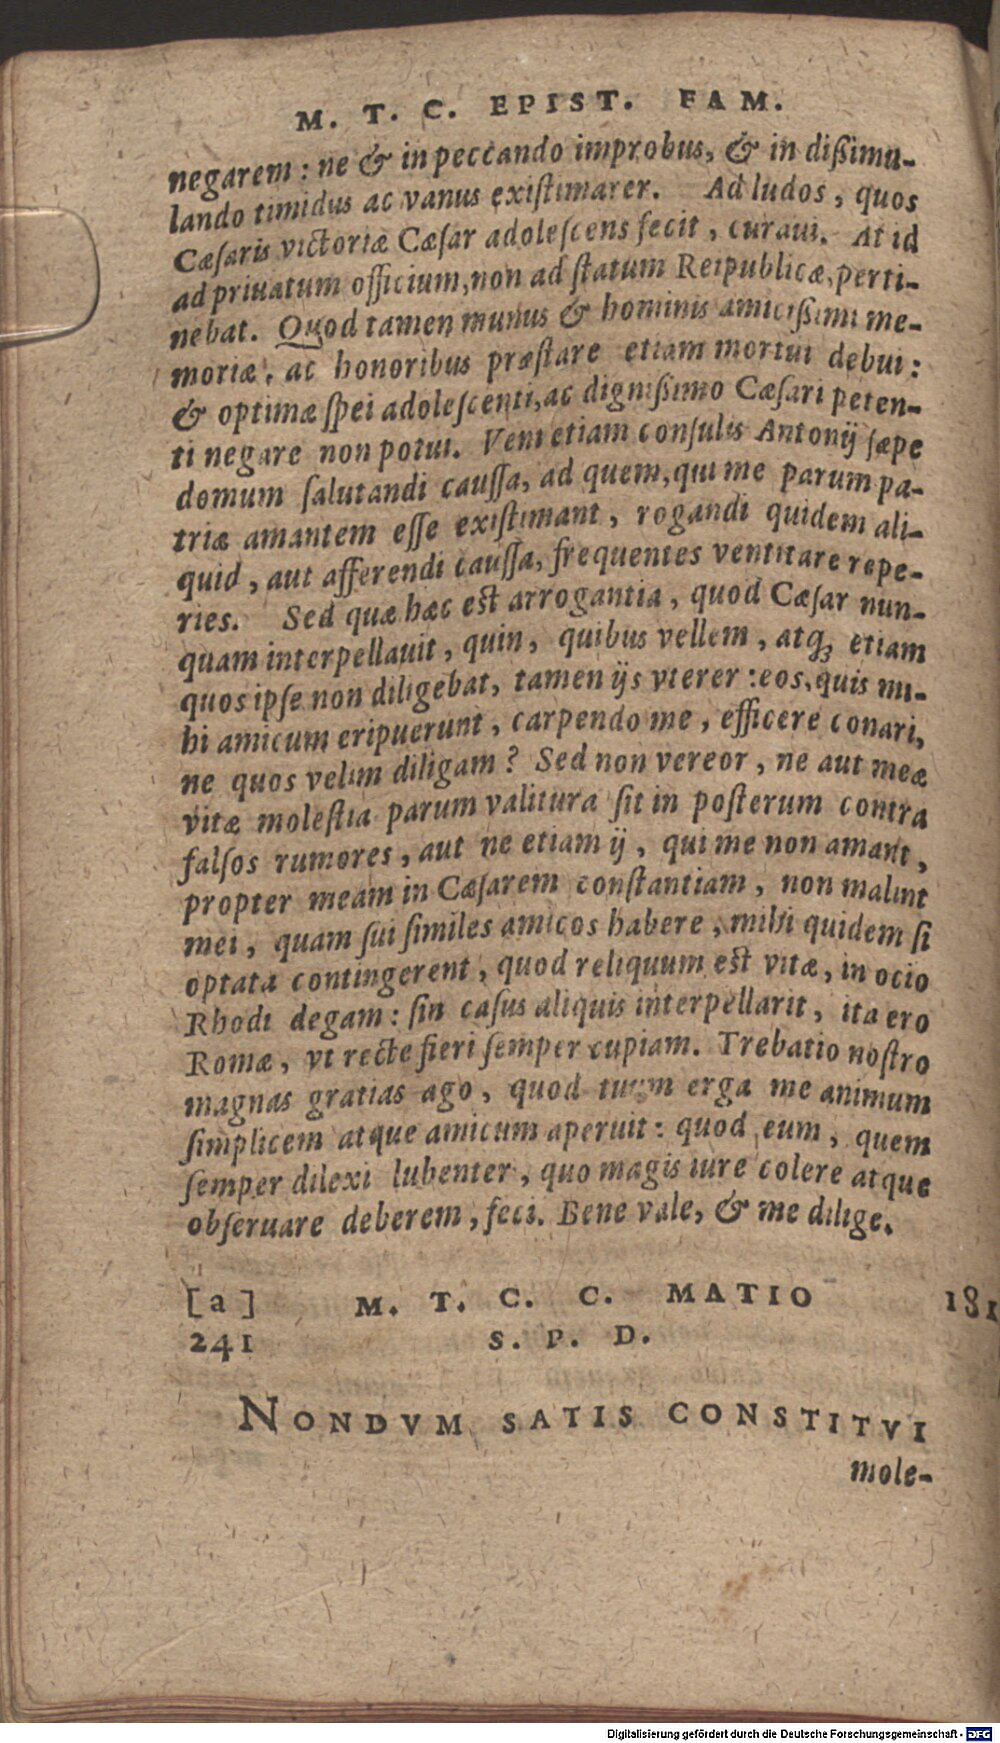 M. T. C. EPIST. FAM.
negarem: ne & in peccando improbus, & in dißimu-
lando timidus ac vanus existimarer. Ad ludos, quos
Cæsaris victoriæ Cæsar adolescens fecit, curaui. At id
ad priuatum officium, non ad statum Reipublicæ, perti-
nebat. Quod tamen munus & hominis amicißimi me-
moriæ, ac honoribus præstare etiam mortui debui:
& optimæ spei adolescenti, ac dignißimo Cæsari peten-
ti negare non potui. Veni etiam consulis Antonij sæpe
domum salutandi caussa, ad quem, qui me parum pa-
triæ amantem esse existimant, rogandi quidem ali-
quid, aut afferendi caussa, frequentes ventitare repe-
ries. Sed quæ hæc est arrogantia, quod Cæsar nun-
quam interpellauit, quin, quibus vellem, atq; etiam
quos ipse non diligebat, tamen ijs vterer: eos, quis mi-
hi amicum eripuerunt, carpendo me, efficere conari,
ne quos velim diligam? Sed non vereor, ne aut meæ
vitæ molestia parum valitura sit in posterum contra
falsos rumores, aut ne etiam ij, qui me non amant,
propter meam in Cæsarem constantiam, non malint
mei, quam sui similes amicos habere, mihi quidem si
optata contingerent, quod reliquum est vitæ, in ocio
Rhodi degam: sin casus aliquis interpellarit, ita ero
Romæ, vt recte fieri semper cupiam. Trebatio nostro
magnas gratias ago, quod tuum erga me animum
simplicem atque amicum aperuit: quod eum, quem
semper dilexi lubenter, quo magis iure colere atque
obseruare deberem, feci. Bene vale, & me dilige.
[a] M. T. C. C. MATIO 181
241 S. P. D.
NONDVM SATIS CONSTITVI
mole-
Digitalisierung gefördert durch die Deutsche Forschungsgemeinschaft - DFG